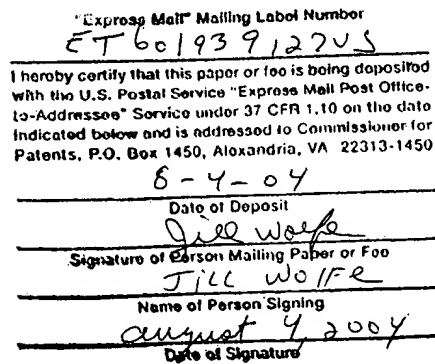 "Express Mail" Mailing Label Number
ET601939127US
I hereby certify that this paper or fee is being deposited
with the U.S. Postal Service "Express Mail Post Office-
to-Addressee" Service under 37 CFR 1.10 on the date
indicated below and is addressed to Commissioner for
Patents, P.O. Box 1450, Alexandria, VA 22313-1450
8-4-04
Date of Deposit
Jill Wolfe
Signature of Person Mailing Paper or Fee
Jill Wolfe
Name of Person Signing
August 4, 2004
Date of Signature